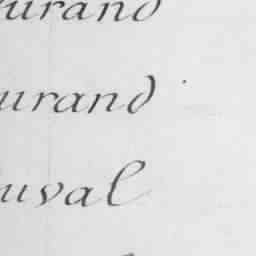 urand
urand
uval